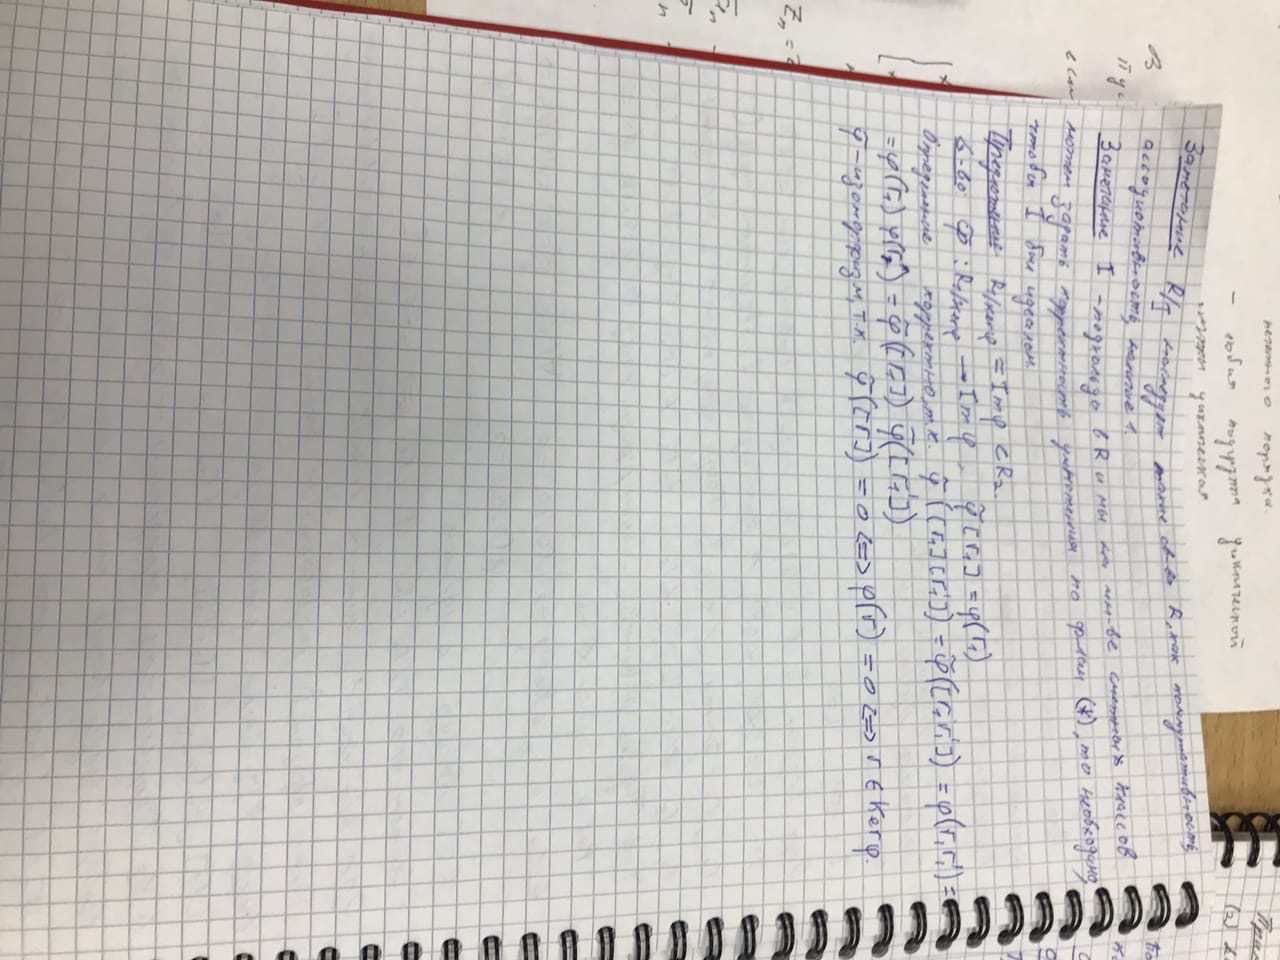 нечетного порядка.
- любая подгруппа циклической
циклическая
Замечание R/I наследует такие св-ва R, как коммутативность,
ассоциативность, наличие 1.
Замечание I - подкольцо в R и мы на мн-ве смежных классов
можем задать корректность умножения по ф-лам (*), то необходимо,
чтобы I был идеалом.
Предложение R₁/Kerφ ≃ Imφ ⊂ R₂.
Д-во φ̃ : R₁/Kerφ → Imφ, φ̃[r₁] = φ(r₁)
Определение корректно, т.к. φ̃([r₁][r₁']) = φ̃([r₁r₁']) = φ(r₁r₁') =
= φ(r₁) φ(r₁') = φ̃([r₁]) φ̃([r₁'])
φ̃ - изоморфизм, т.к. φ̃([r]) = 0 ⟺ φ(r) = 0 ⟺ r ∈ Kerφ.
В
Zₙ =
(2)